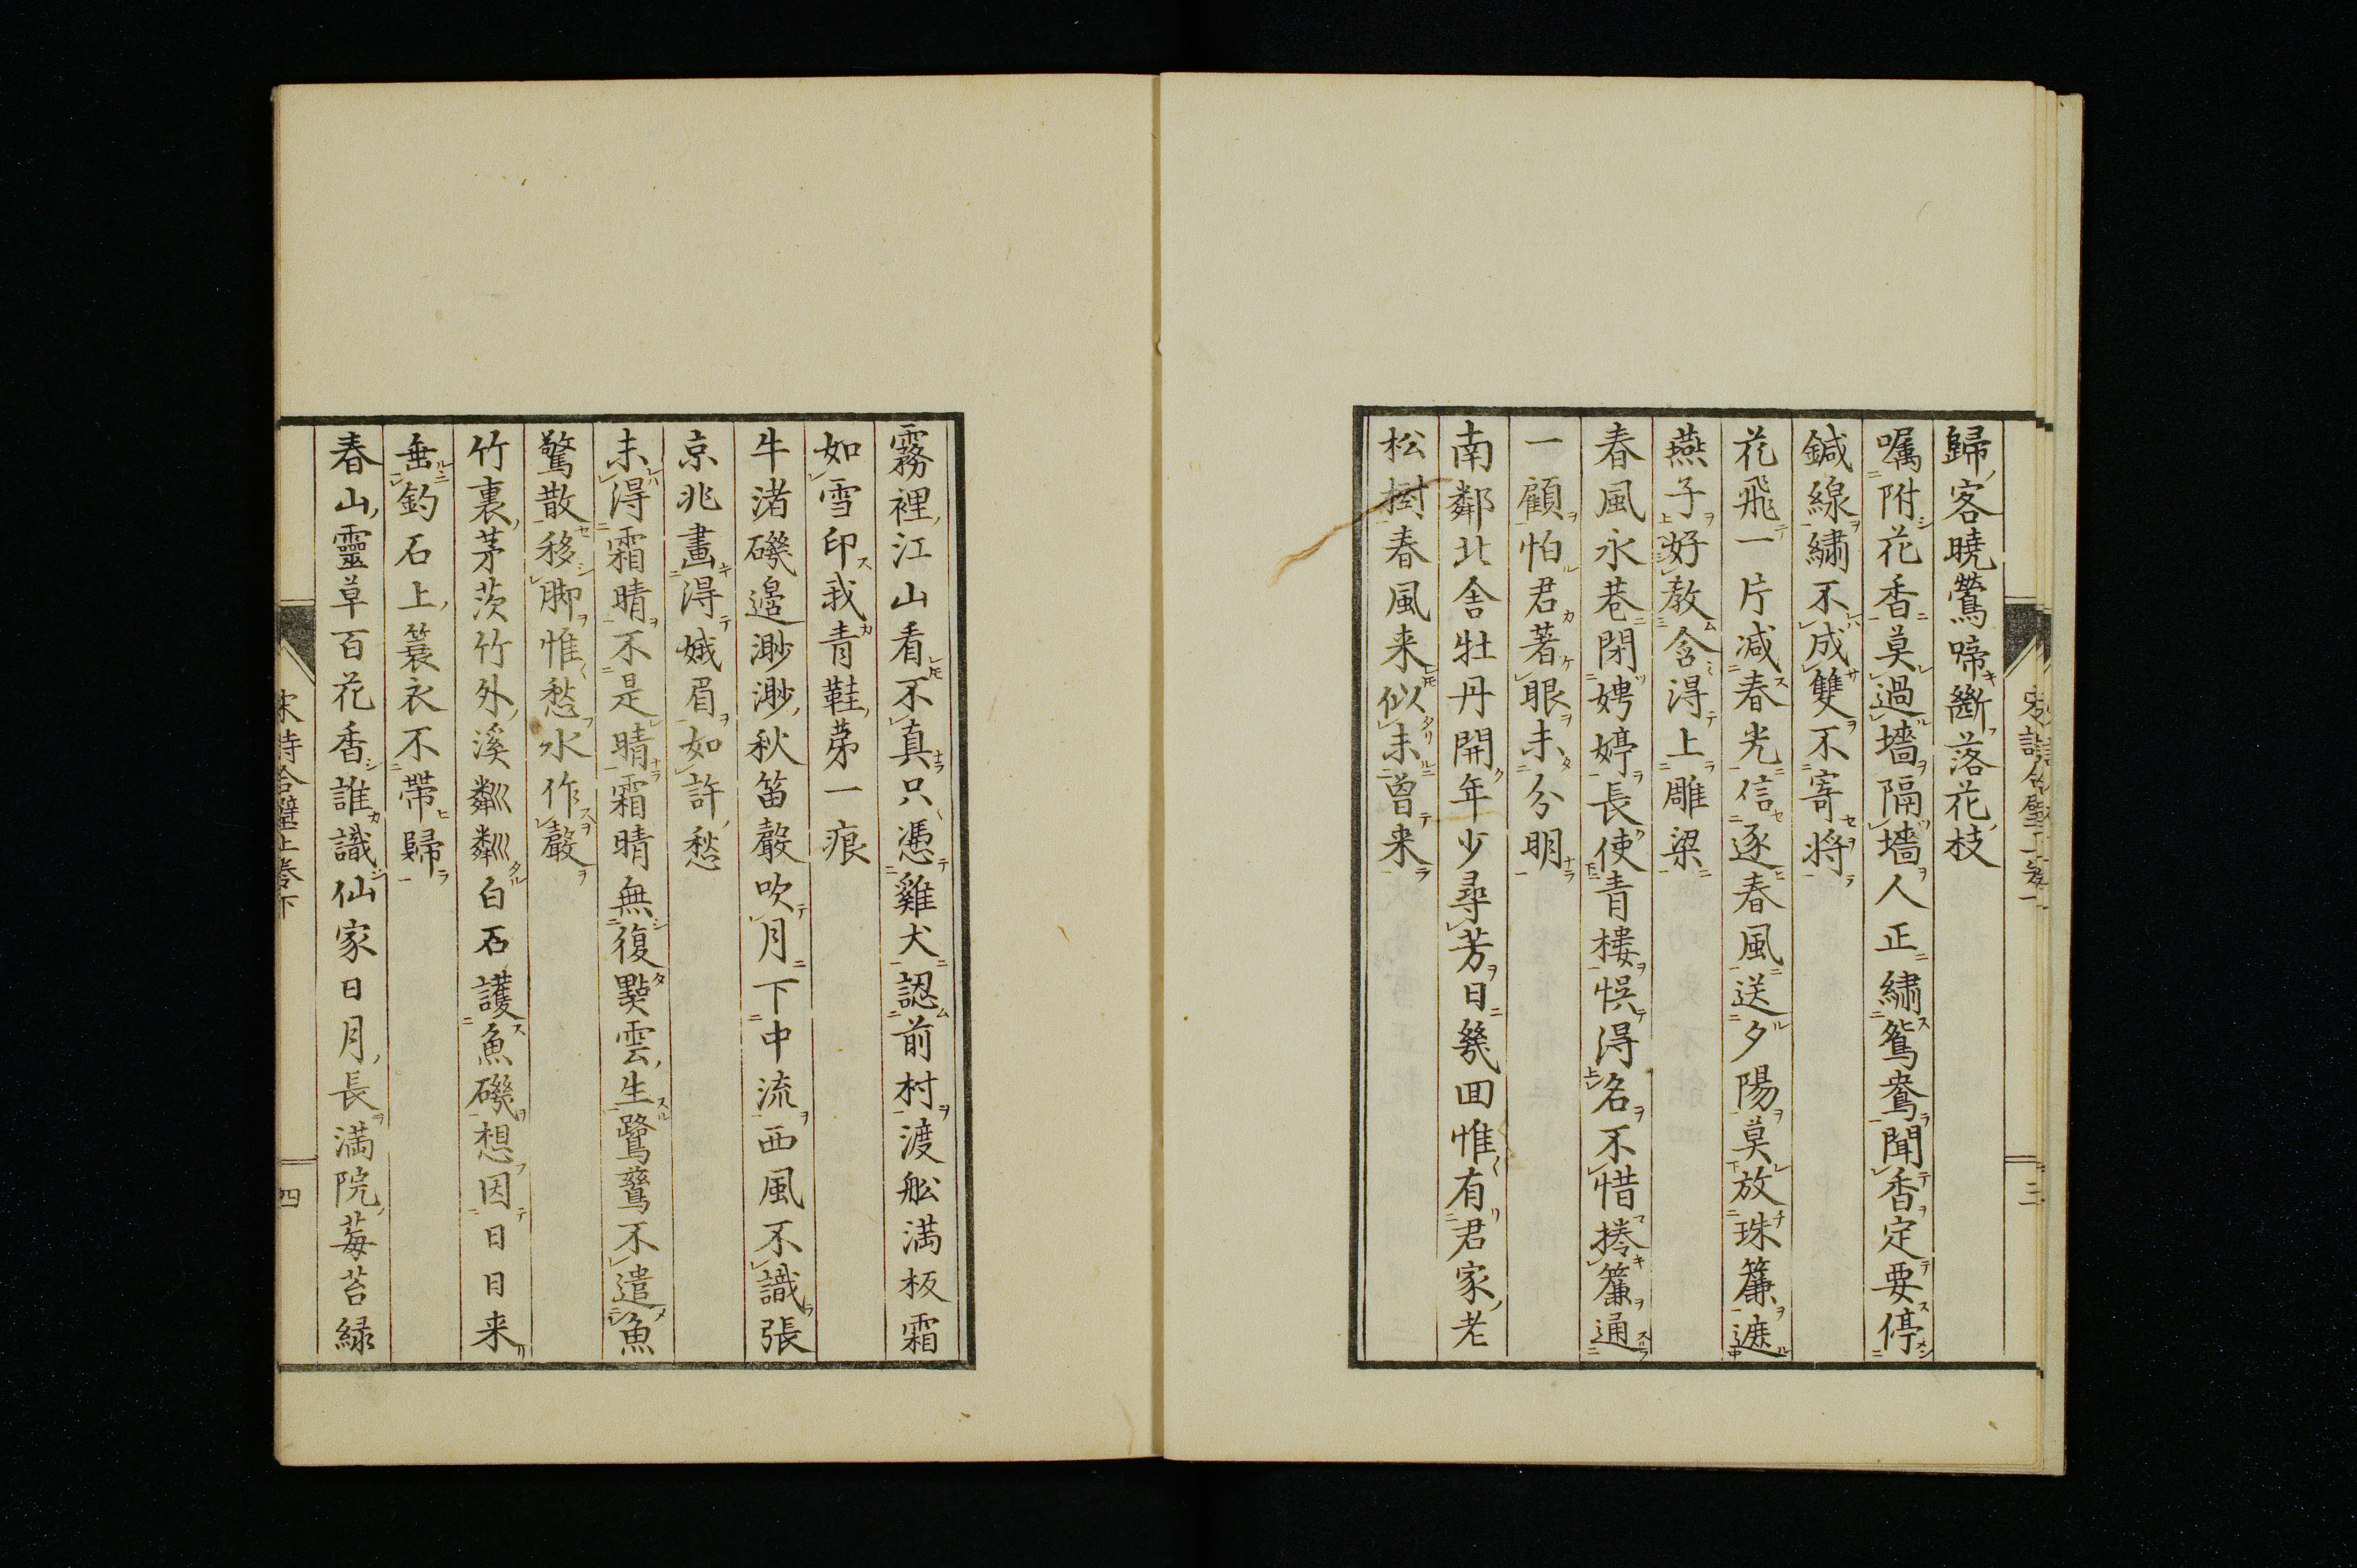 歸客曉鶯啼斷落花枝
嘱附花香莫過墻隔墻人正繡鴛鴦聞香定要停
鍼線繡不成雙不寄将
花飛一片减春光信逐春風送夕陽莫放珠簾遮
燕子好教含得上雕梁
春風永巷閉娉婷長使青樓悮得名不惜捲簾通
一顧怕君著眼未分明
南鄰北舎牡丹開年少尋芳日幾囬惟有君家老
松樹春風来似未曽来
三
霧裡江山看不真只憑雞犬認前村渡舩満板霜
如雪印我青鞋苐一痕
牛渚磯邉渺渺秋笛聲吹月下中流西風不識張
京兆畫得娥眉如許愁
未得霜晴不是晴霜晴無復點雲生鷺鷥不遣魚
驚散移脚惟愁水作聲
竹裏茅茨竹外溪粼粼白石護魚磯想因日日来
垂釣石上簑衣不帶歸
春山靈草百花香誰識仙家日月長満院莓苔緑
宋詩合璧上卷下
四